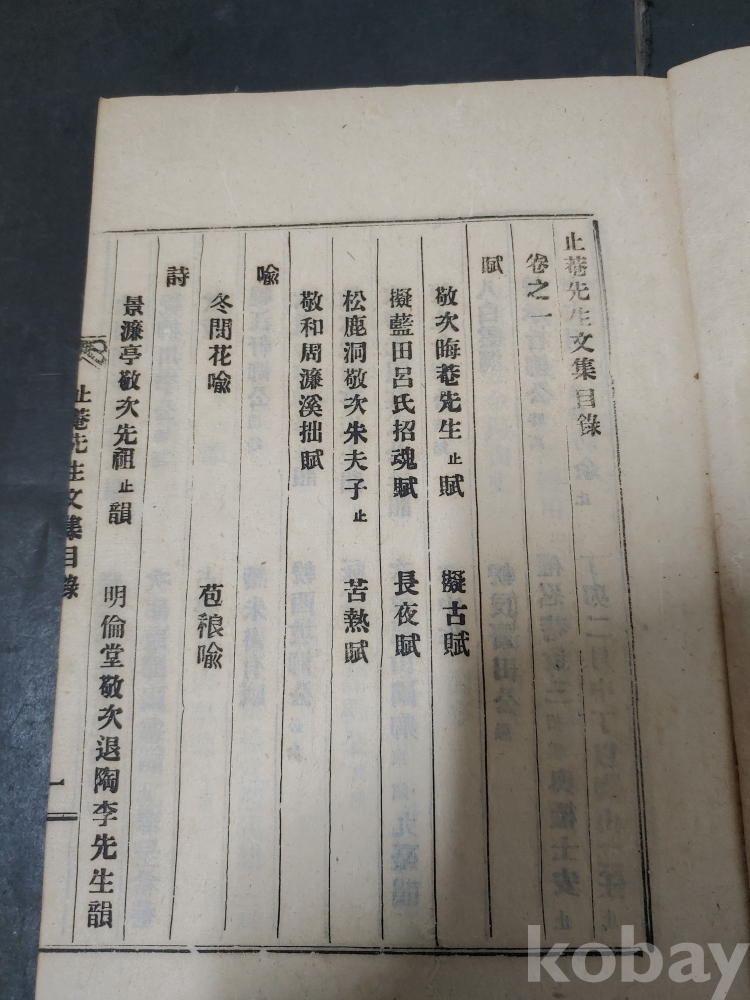 止菴先生文集目錄
卷之一
賦
敬次晦菴先生止賦 擬古賦
擬藍田呂氏招魂賦 長夜賦
松鹿洞敬次朱夫子止 苦熱賦
敬和周濂溪拙賦
喩
冬閒花喩 苞稂喩
詩
景濂亭敬次先祖止韻 明倫堂敬次退陶李先生韻
止菴先生文集目錄
一
kobay